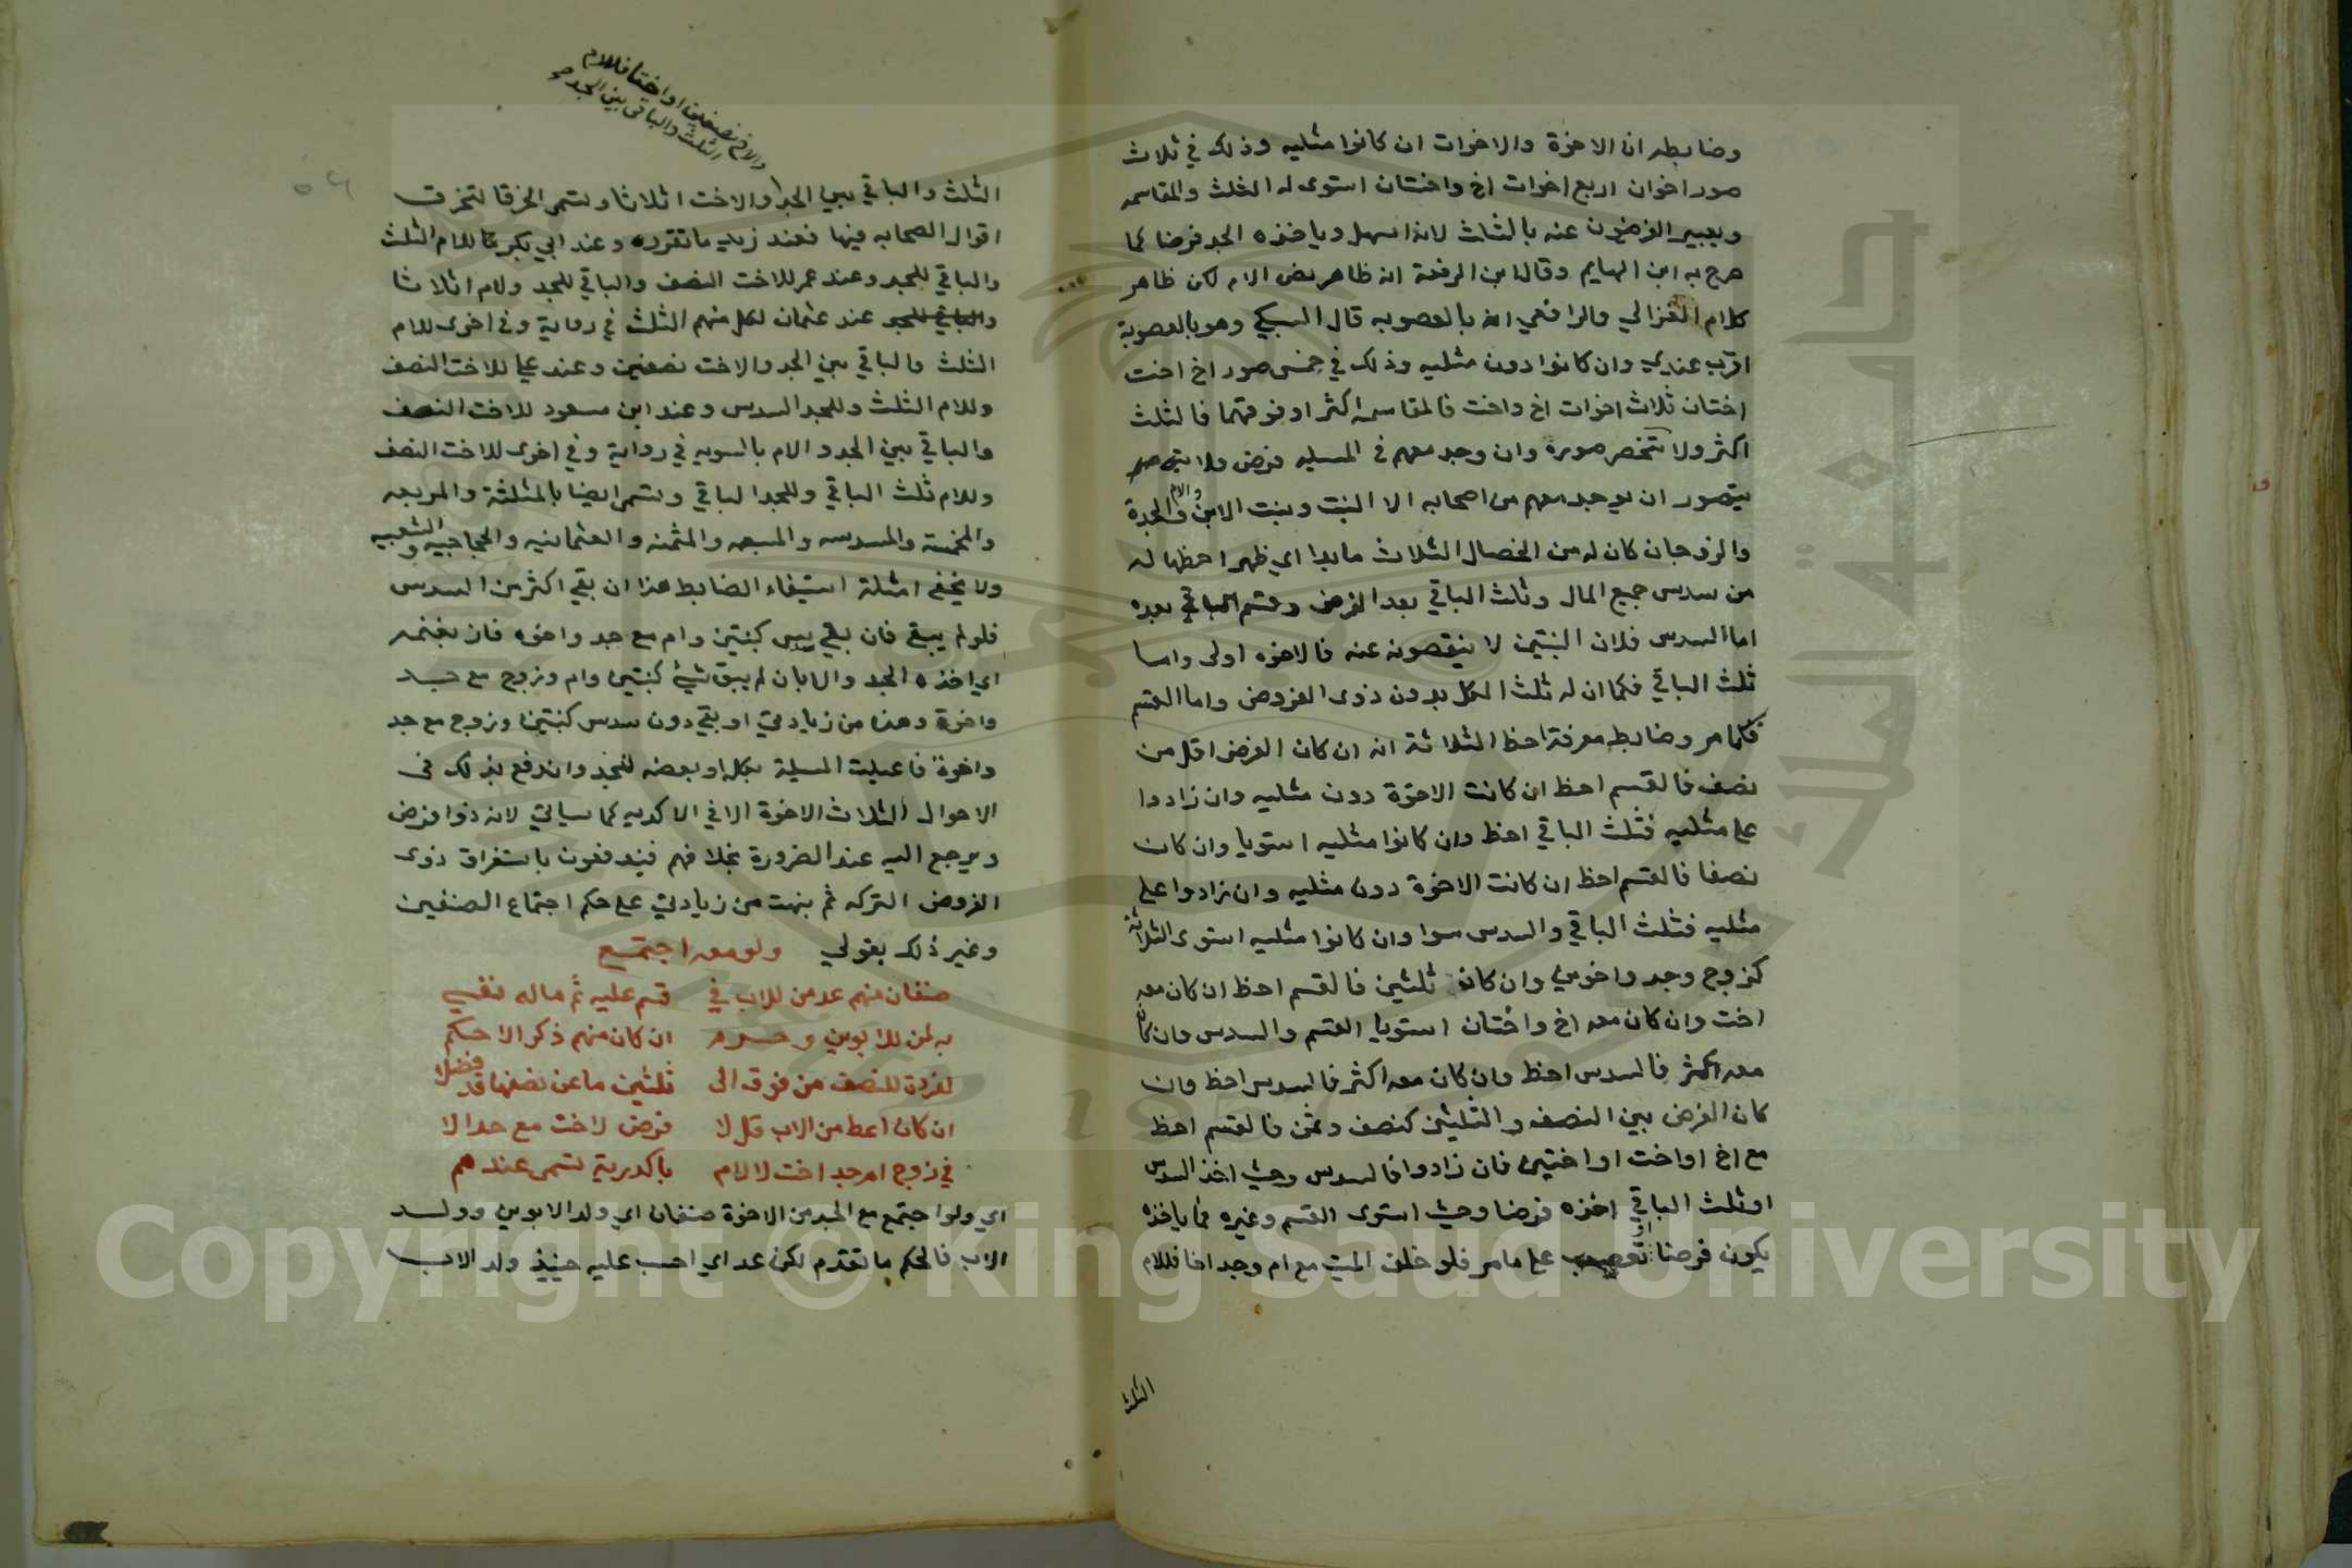 وضابطه ان الاخوة والاخوات ان كانوا مثليه وذلك في ثلاث
صور اخوان اربع اخوات اخ واختان استوى له الثلث والمقاسمه
ويعبر الفرضيون عنه بالثلث لانه اسهل وياخذه الجد فرضا كما
صرح به ابن الهايم وقال ابن الرفعة انه ظاهر نص الام لكن ظاهر
كلام الغزالي والرافعي انه بالعصوبه قال السبكي وهو بالعصوبة
اقرب عندي وان كانوا دون مثليه وذلك في خمس صور اخ اخت
اختان ثلاث اخوات اخ واخت فالمقاسمه اكثر او فوقهما فالثلث
اكثر ولا تنحصر صوره وان وجد معهم في المسيله فرض ولا
يتصور ان يوجد معهم من اصحابه الا البنت وبنت الابن والام والجدة
والزوجان كان له من الخصال الثلاث ما بدا اي ظهر احظها له
من سدس جميع المال وثلث الباقي بعد الفرض وقسم الباقي بعده
اما السدس فلان البنتين لا ينقصونه عنه فالاخوه اولى واما
ثلث الباقي فكما ان له ثلث الكل بدون ذوى الفروض واما القسم
فكما مر وضابط معرفة احظ الثلاثة انه ان كان الفرض اقل من
نصف فالقسم احظ ان كانت الاخوة دون مثليه وان زادوا
على مثليه فثلث الباقي احظ وان كانوا مثليه استويا وان كان
نصفا فالقسم احظ ان كانت الاخوة دون مثليه وان زادوا على
مثليه فثلث الباقي والسدس سوا وان كانوا مثليه استوى الثلاثة
كزوج وجد واخوين وان كان ثلثين فالقسم احظ ان كان معه
اخت وان كان معه اخ واختان استويا القسم والسدس وان كان
معه اكثر فالسدس احظ وان كان معه اكثر فالسدس احظ وان
كان الفرض بين النصف والثلثين كنصف وثمن فالقسم احظ
مع اخ او اخت او اختين فان زادوا فالسدس وحيث اخذ السدس
او ثلث الباقي اخذه فرضا وحيث استوى القسم وغيره فما ياخذه
يكون فرضا او تعصيب على ما مر فلو خلف الميت مع ام وجد اخا فللام
الثلث
والاخ نصفين او اختا فللام
الثلث والباقي بين الجد
الثلث والباقي بين الجد والاخت اثلاثا وتسمى الخرقا لتخرق
اقوال الصحابه فيها فعند زيد ما تقرر وعند ابي بكر للام الثلث
والباقي للجد وعند عمر للاخت النصف والباقي للجد ولام اثلاثا
والباقي للجد عند عثمان لكل منهم الثلث في رواية وفي اخرى للام
الثلث والباقي بين الجد والاخت نصفين وعند علي للاخت النصف
وللام الثلث وللجد السدس وعند ابن مسعود للاخت النصف
والباقي بين الجد والام بالسويه في رواية وفي اخرى للاخت النصف
وللام ثلث الباقي وللجد الباقي وتسمى ايضا بالمثلثة والمربعه
والمخمسة والمسدسه والمسبعه والمثمنه والعثمانيه والحجاجيه والشعبيه
ولا يخفى امثلة استيفاء الضابط هذا ان بقي اكثر من السدس
فلو لم يبق فان بقي سدس كبنتين وام مع جد واخوه فان يغنمه
اي اخذه الجد والا بان لم يبق شيئ كبنتين وام وزوج مع جد
واخوة وهذه من زيادتي او بقي دون سدس كبنتين وزوج مع جد
واخوة فاعيلت المسيلة بكله او بعضه للجد واندفع بذلك في
الاحوال الثلاث الاخوة الا في الاكدريه كما سياتي لانه ذوا فرض
ويرجع اليه عند الضرورة بخلافهم فيندفعون باستغراق ذوى
الفروض التركه ثم نبهت من زيادتي على حكم اجتماع الصنفين
وغير ذلك بقولي ولو معه اجتمع
صنفان منهم عد من للاب في قسم عليه ثم ماله نفي
به لمن للابوين وحرم ان كان منهم ذكر الا حكم
لفردة للنصف من فوق الى ثلثين ما عن نصفها قد فضلا
ان كان اعط من الاب قل لا فرض لاخت مع جد الا
في زوج ام جد اخت لا لام باكدرية تسمى عندهم
اي ولو اجتمع مع الجد من الاخوة صنفان اي ولد الابوين وولد
الاب فالحكم ما تقدم لكن عد اي احسب عليه حينيذ ولد الاب
Copyright © King Saud University